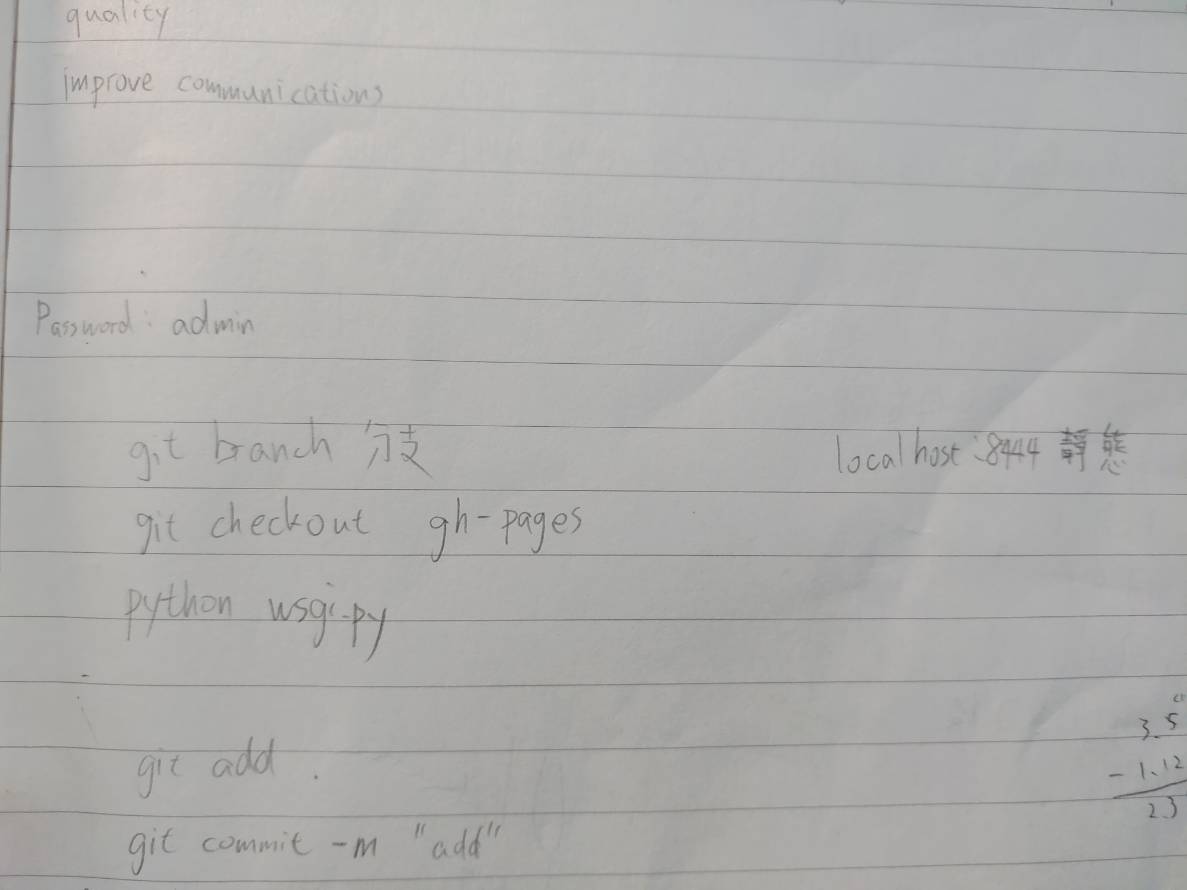 quality
improve communications
Password: admin
git branch 分支
localhost:8444 靜態
git checkout gh-pages
python wsgi.py
git add .
3.5
git commit -m "add"
- 1.12
2.3